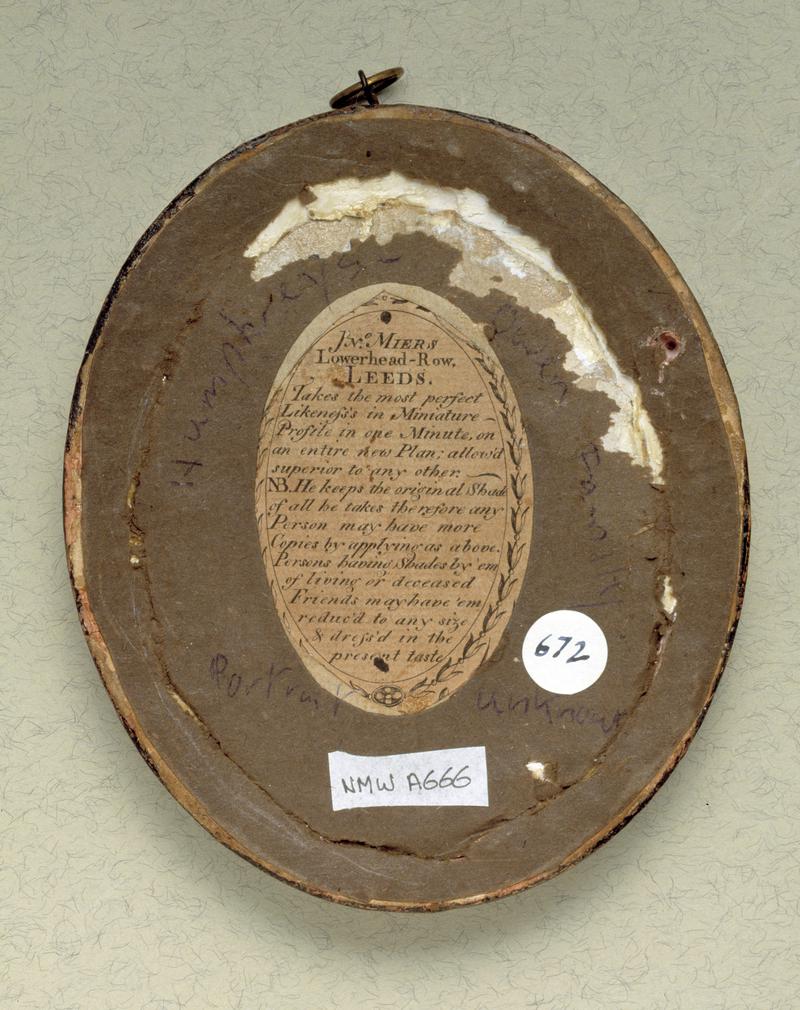 Humphreys
Owen
Family
JNo. MIERS
Lowerhead-Row,
LEEDS.
Takes the most perfect
Likeneſs in Miniature
Profile in one Minute, on
an entire new Plan; allow'd
superior to any other.
NB. He keeps the original Shade
of all he takes therefore any
Person may have more
Copies by applying as above.
Persons having Shades by 'em
of living or deceased
Friends may have 'em
reduc'd to any size
& dreſs'd in the
present taste
672
Portrait unknown
NMW A666